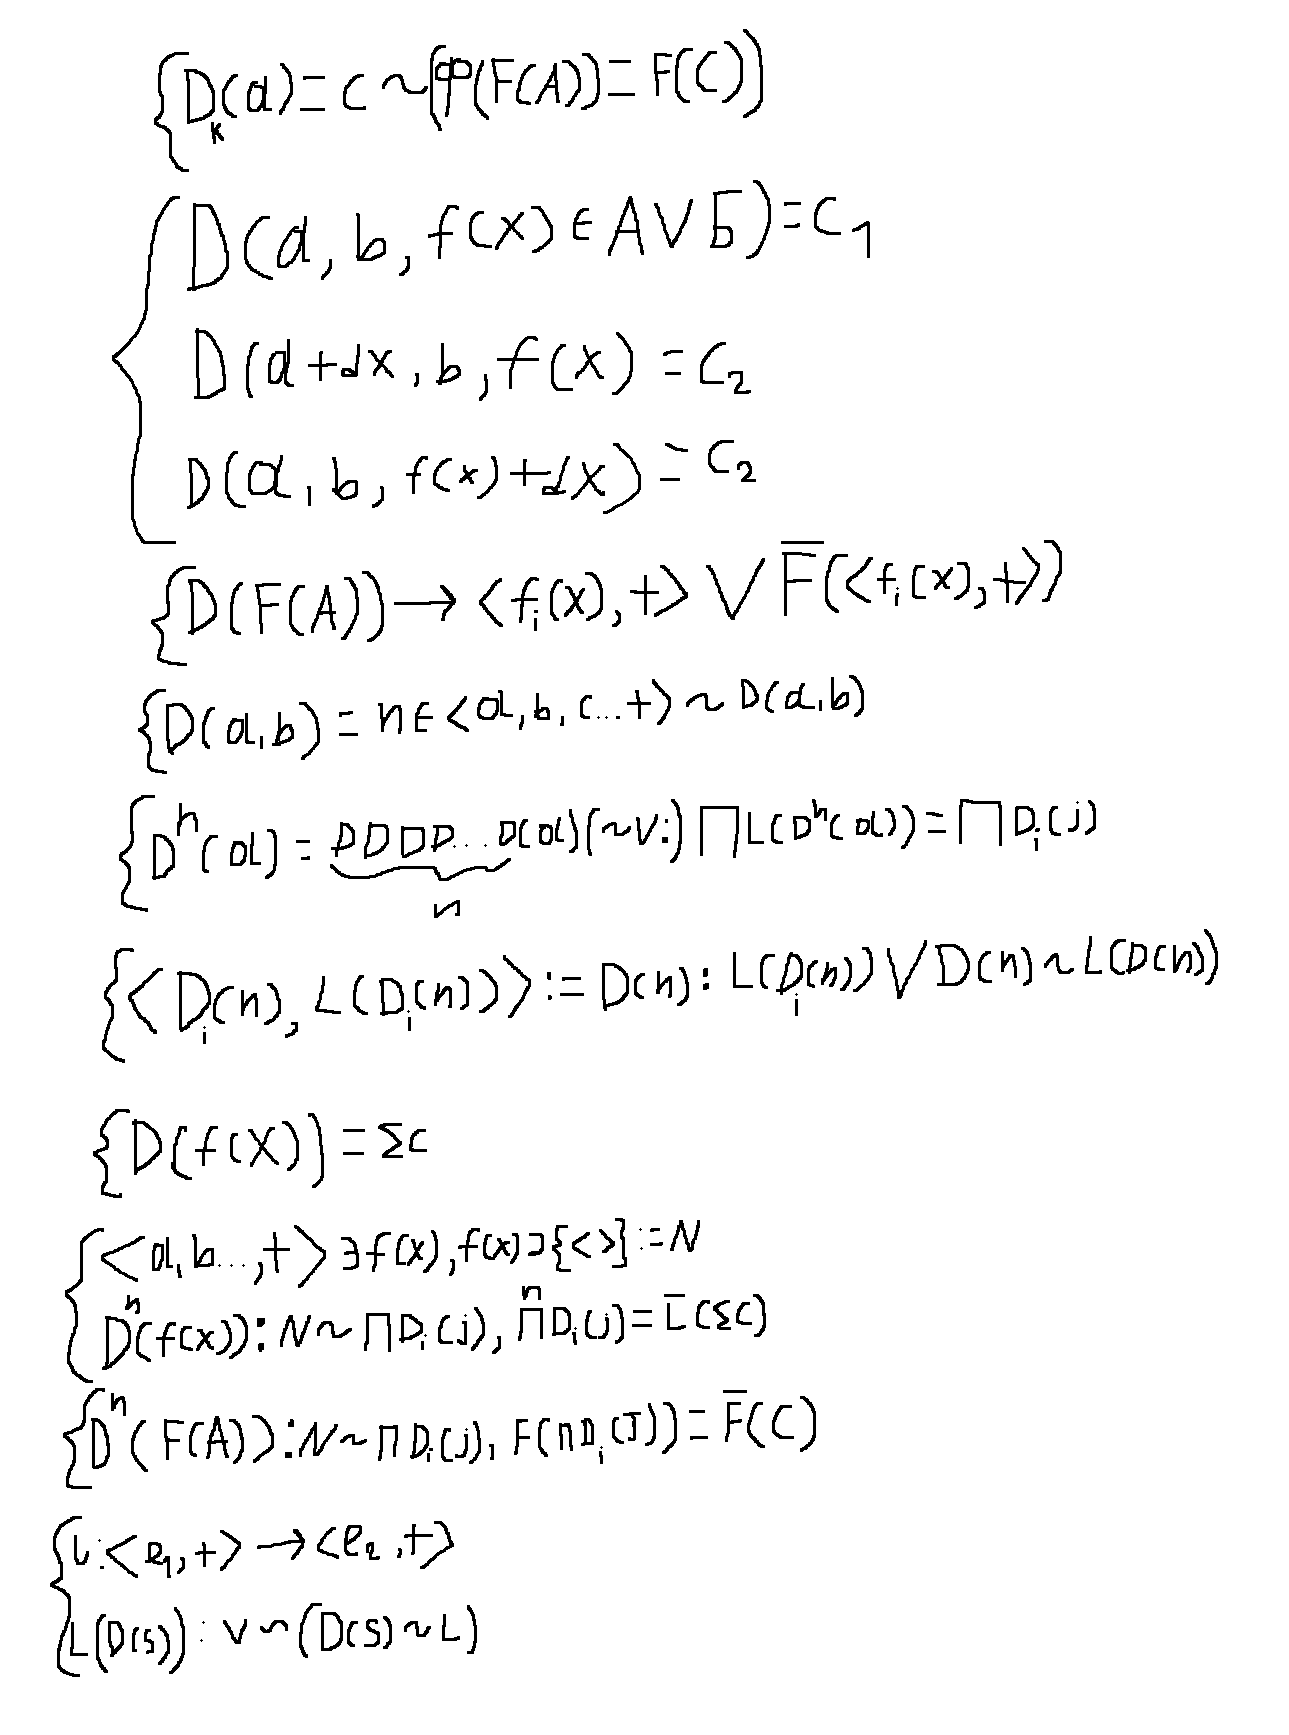 {D_k(a) = c ~ (φ(F(A)) = F(C))
{D(a, b, f(x) ∈ A ∨ Б) = C_1
D(a+dx, b, f(x) = C_2
D(a, b, f(x)+dx) = C_2
{D(F(A)) → <f_i(x), +> ∨ F̅(<f_i(x), +>)
{D(a,b) = n ∈ <a, b, c...+> ~ D(a,b)
{D^n(a) = DDDD...D(a)(~∨:) ∏L(D^n(a)) = ∏D_i(j)
n
{<D_i(n), L(D_i(n))> := D(n) : L(D_i(n)) ∨ D(n) ~ L(D(n))
{D(f(x)) = Σc
{<a, b..., +> ∋ f(x), f(x) ⊃ {< >} := N
D^n(f(x)) : N ~ ∏D_i(j), ∏^n D_i(j) = L̅(Σc)
{D^n(F(A)) : N ~ ∏D_i(j), F(∏D_i(J)) = F̅(C)
{L : <e_1, +> → <e_2, +>
L(D(s)) : ∨ ~ (D(s) ~ L)